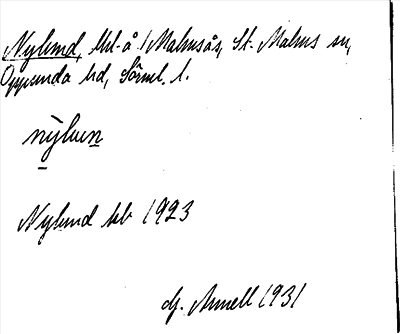 Nylund, lht. å Malmsås, St. Malms sn,
Oppunda hd, Söml. l.
nỳlun
Nylund kb 1923
Hj. Annell 1931